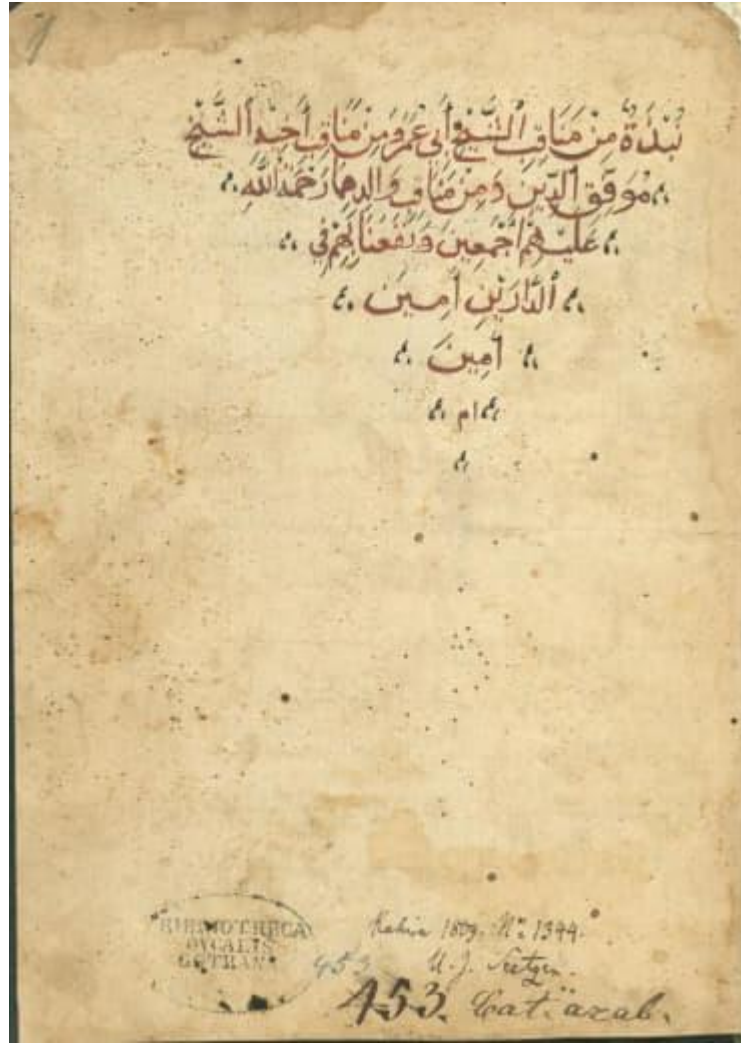 نُبْذَةٌ مِنْ مَنَاقِبِ ٱلشَّيْخِ أَبِي عُمَرَ وَمِنْ مَنَاقِبِ أَخِيهِ ٱلشَّيْخِ
مُوَفَّقِ ٱلدِّينِ وَمِنْ مَنَاقِبِ وَالِدِهِمَا رَحْمَةُ ٱللَّهِ
عَلَيْهِمْ أَجْمَعِينَ وَنَفَعَنَا بِهِمْ فِي
ٱلدَّارَيْنِ آمِينَ
آمِينَ
ام
BIBLIOTHECA
DVCALIS
GOTHANA
Kahira 1809. No. 1344.
U. J. Seetzen.
453
453. Cat. arab.